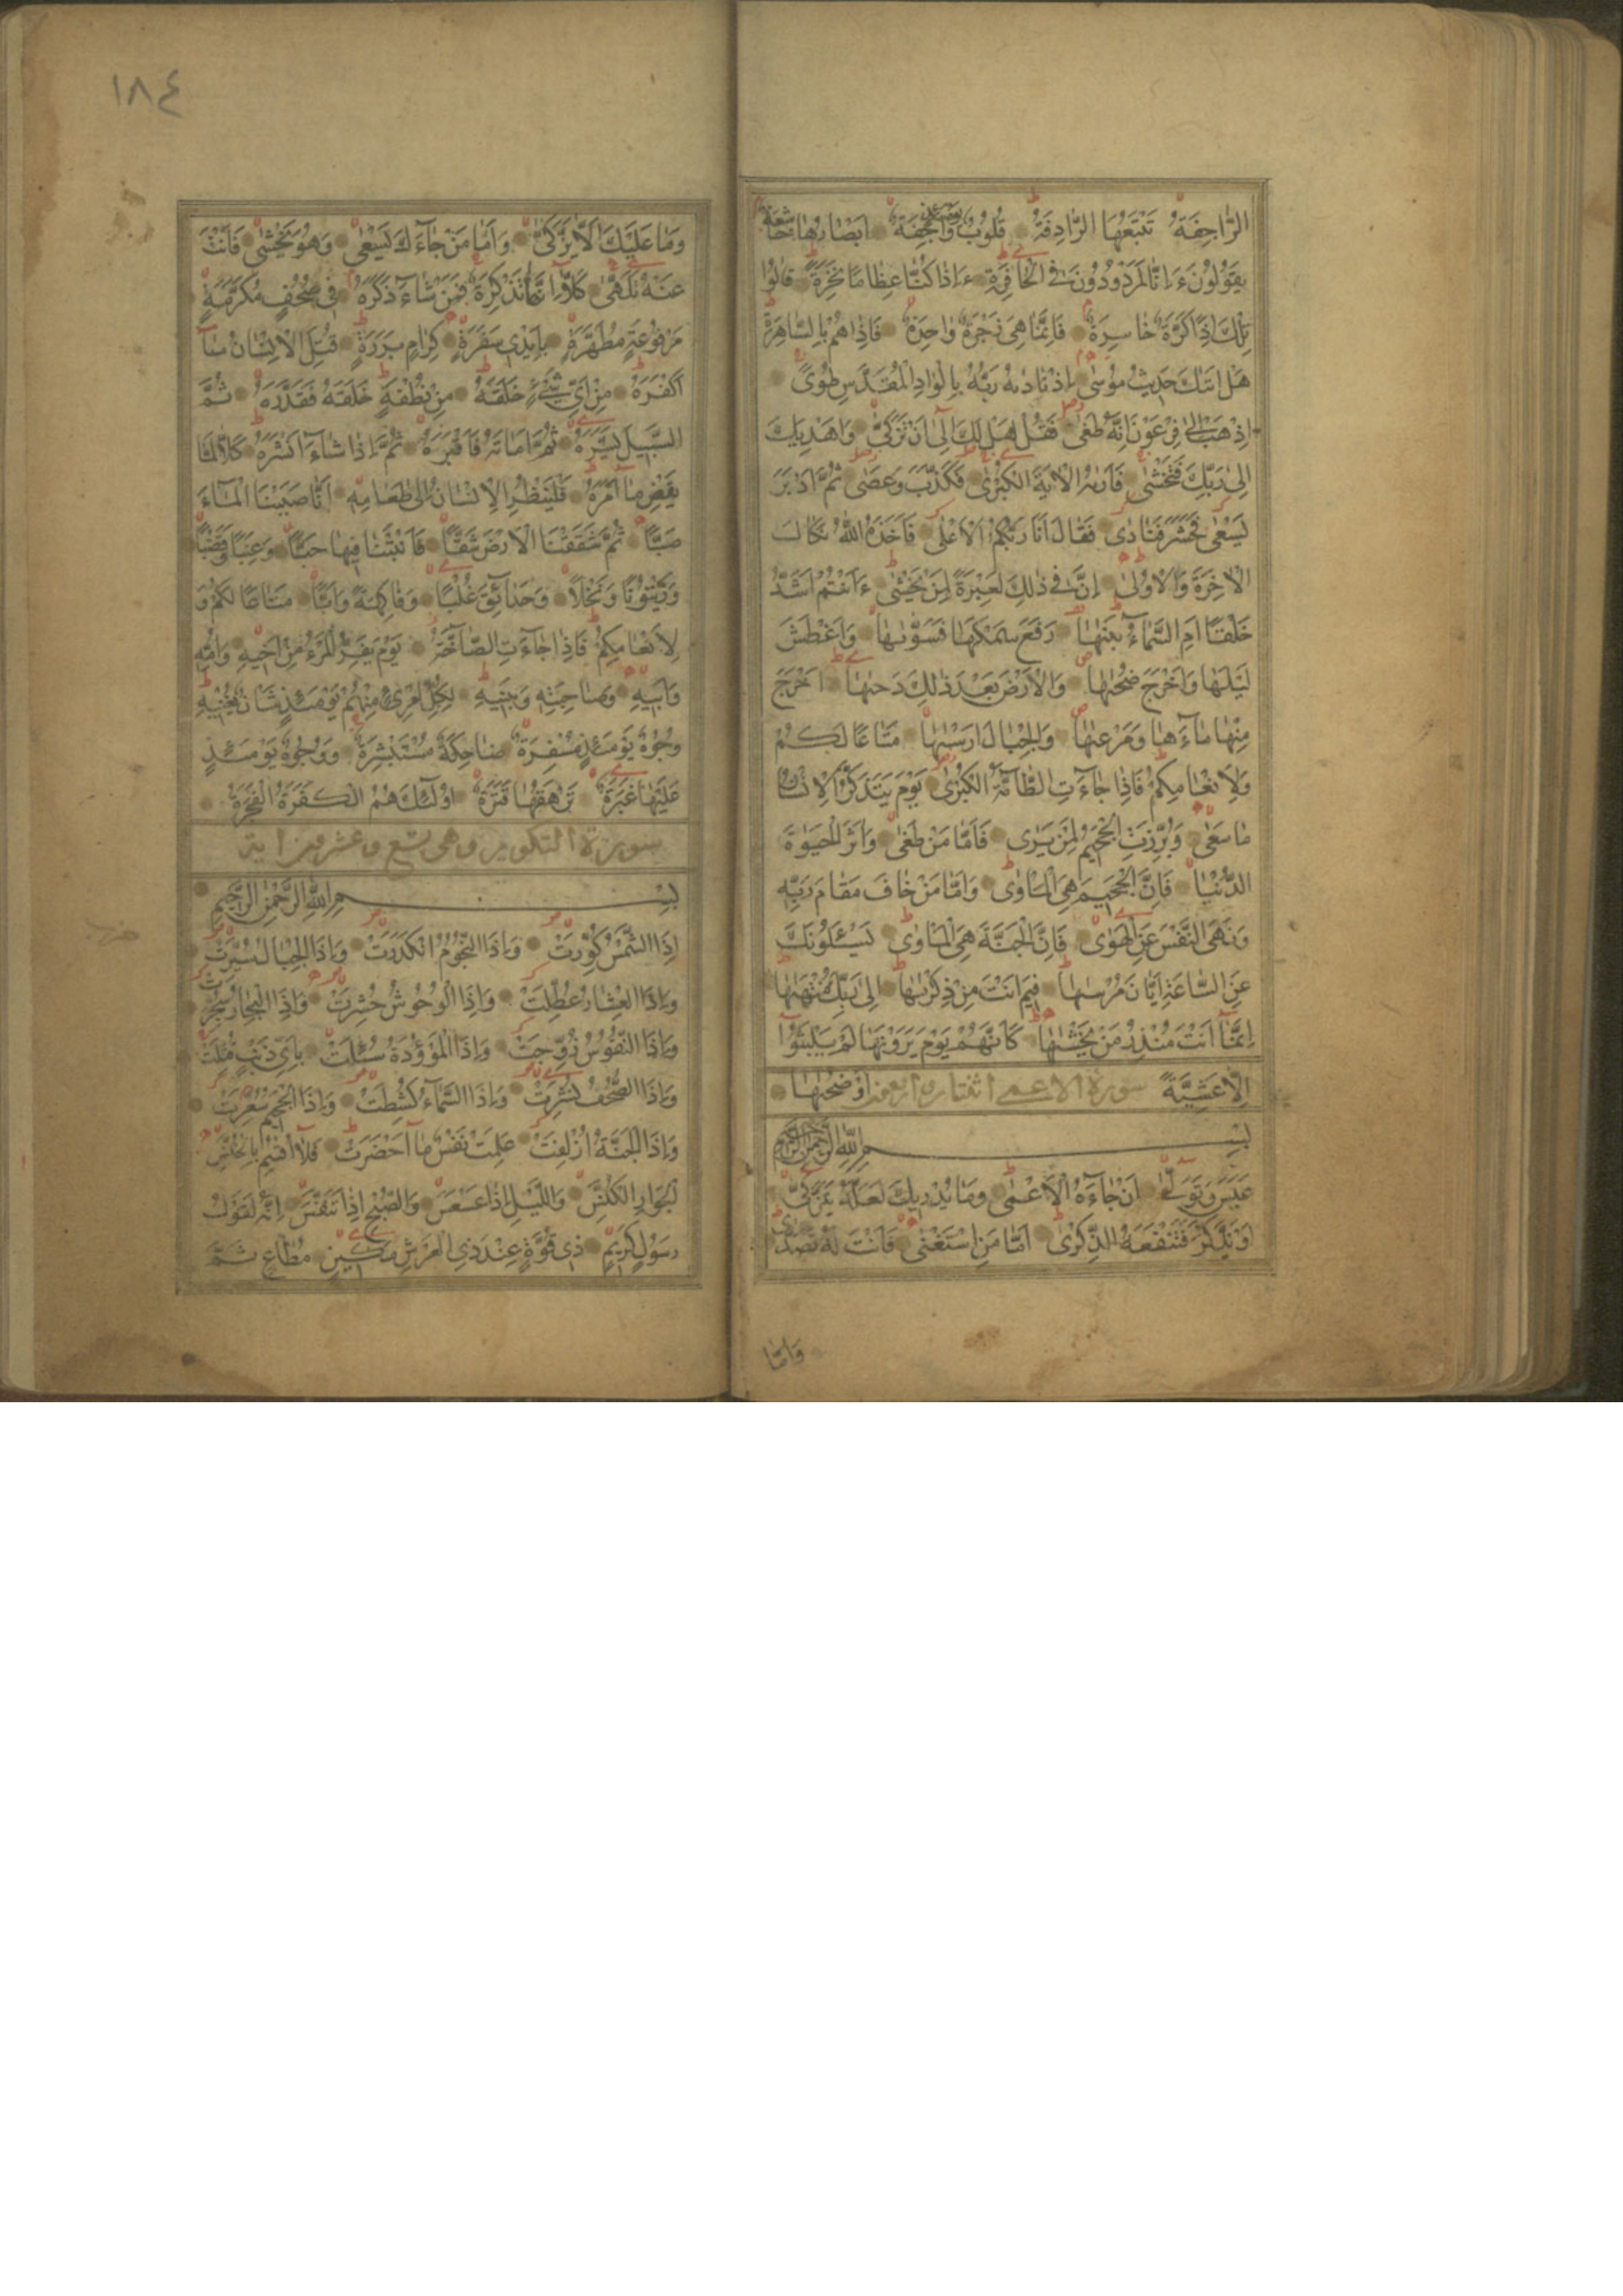 الرَّاجِفَةُ تَتْبَعُهَا الرَّادِفَةُ قُلُوبٌ يَوْمَئِذٍ وَاجِفَةٌ اَبْصَارُهَا خَاشِعَةٌ
يَقُولُونَ ءَاِنَّا لَمَرْدُودُونَ فِي الْحَافِرَةِ ءَاِذَا كُنَّا عِظَامًا نَخِرَةً قَالُوا
تِلْكَ اِذًا كَرَّةٌ خَاسِرَةٌ فَاِنَّمَا هِيَ زَجْرَةٌ وَاحِدَةٌ فَاِذَا هُمْ بِالسَّاهِرَةِ
هَلْ اَتٰيكَ حَدِيثُ مُوسٰى اِذْ نَادٰيهُ رَبُّهُ بِالْوَادِ الْمُقَدَّسِ طُوًى
اِذْهَبْ اِلٰى فِرْعَوْنَ اِنَّهُ طَغٰى فَقُلْ هَلْ لَكَ اِلٰٓى اَنْ تَزَكّٰى وَاَهْدِيَكَ
اِلٰى رَبِّكَ فَتَخْشٰى فَاَرٰيهُ الْاٰيَةَ الْكُبْرٰى فَكَذَّبَ وَعَصٰى ثُمَّ اَدْبَرَ
يَسْعٰى فَحَشَرَ فَنَادٰى فَقَالَ اَنَا رَبُّكُمُ الْاَعْلٰى فَاَخَذَهُ اللّٰهُ نَكَالَ
الْاٰخِرَةِ وَالْاُولٰى اِنَّ فِي ذٰلِكَ لَعِبْرَةً لِمَنْ يَخْشٰى ءَاَنْتُمْ اَشَدُّ
خَلْقًا اَمِ السَّمَآءُ بَنٰيهَا رَفَعَ سَمْكَهَا فَسَوّٰيهَا وَاَغْطَشَ
لَيْلَهَا وَاَخْرَجَ ضُحٰيهَا وَالْاَرْضَ بَعْدَ ذٰلِكَ دَحٰيهَا اَخْرَجَ
مِنْهَا مَآءَهَا وَمَرْعٰيهَا وَالْجِبَالَ اَرْسٰيهَا مَتَاعًا لَكُمْ
وَلِاَنْعَامِكُمْ فَاِذَا جَآءَتِ الطَّآمَّةُ الْكُبْرٰى يَوْمَ يَتَذَكَّرُ الْاِنْسَانُ
مَا سَعٰى وَبُرِّزَتِ الْجَحِيمُ لِمَنْ يَرٰى فَاَمَّا مَنْ طَغٰى وَاٰثَرَ الْحَيٰوةَ
الدُّنْيَا فَاِنَّ الْجَحِيمَ هِيَ الْمَاْوٰى وَاَمَّا مَنْ خَافَ مَقَامَ رَبِّهِ
وَنَهَى النَّفْسَ عَنِ الْهَوٰى فَاِنَّ الْجَنَّةَ هِيَ الْمَاْوٰى يَسْـَٔلُونَكَ
عَنِ السَّاعَةِ اَيَّانَ مُرْسٰيهَا فِيمَ اَنْتَ مِنْ ذِكْرٰيهَا اِلٰى رَبِّكَ مُنْتَهٰيهَا
اِنَّمَآ اَنْتَ مُنْذِرُ مَنْ يَخْشٰيهَا كَاَنَّهُمْ يَوْمَ يَرَوْنَهَا لَمْ يَلْبَثُوٓا
اِلَّا عَشِيَّةً اَوْ ضُحٰيهَا سورة الاعمى اثنتان اربعون
بِسْمِ اللّٰهِ الرَّحْمٰنِ الرَّحِيمِ
عَبَسَ وَتَوَلّٰى اَنْ جَآءَهُ الْاَعْمٰى وَمَا يُدْرِيكَ لَعَلَّهُ يَزَّكّٰى
اَوْ يَذَّكَّرُ فَتَنْفَعَهُ الذِّكْرٰى اَمَّا مَنِ اسْتَغْنٰى فَاَنْتَ لَهُ تَصَدّٰى
وَاَمَّا
١٨٤
وَمَا عَلَيْكَ اَلَّا يَزَّكّٰى وَاَمَّا مَنْ جَآءَكَ يَسْعٰى وَهُوَ يَخْشٰى فَاَنْتَ
عَنْهُ تَلَهّٰى كَلَّآ اِنَّهَا تَذْكِرَةٌ فَمَنْ شَآءَ ذَكَرَهُ فِي صُحُفٍ مُكَرَّمَةٍ
مَرْفُوعَةٍ مُطَهَّرَةٍ بِاَيْدِي سَفَرَةٍ كِرَامٍ بَرَرَةٍ قُتِلَ الْاِنْسَانُ مَآ
اَكْفَرَهُ مِنْ اَيِّ شَيْءٍ خَلَقَهُ مِنْ نُطْفَةٍ خَلَقَهُ فَقَدَّرَهُ ثُمَّ
السَّبِيلَ يَسَّرَهُ ثُمَّ اَمَاتَهُ فَاَقْبَرَهُ ثُمَّ اِذَا شَآءَ اَنْشَرَهُ كَلَّا لَمَّا
يَقْضِ مَآ اَمَرَهُ فَلْيَنْظُرِ الْاِنْسَانُ اِلٰى طَعَامِهِ اَنَّا صَبَبْنَا الْمَآءَ
صَبًّا ثُمَّ شَقَقْنَا الْاَرْضَ شَقًّا فَاَنْبَتْنَا فِيهَا حَبًّا وَعِنَبًا وَقَضْبًا
وَزَيْتُونًا وَنَخْلًا وَحَدَآئِقَ غُلْبًا وَفَاكِهَةً وَاَبًّا مَتَاعًا لَكُمْ وَ
لِاَنْعَامِكُمْ فَاِذَا جَآءَتِ الصَّآخَّةُ يَوْمَ يَفِرُّ الْمَرْءُ مِنْ اَخِيهِ وَاُمِّهِ
وَاَبِيهِ وَصَاحِبَتِهِ وَبَنِيهِ لِكُلِّ امْرِئٍ مِنْهُمْ يَوْمَئِذٍ شَاْنٌ يُغْنِيهِ
وُجُوهٌ يَوْمَئِذٍ مُسْفِرَةٌ ضَاحِكَةٌ مُسْتَبْشِرَةٌ وَوُجُوهٌ يَوْمَئِذٍ
عَلَيْهَا غَبَرَةٌ تَرْهَقُهَا قَتَرَةٌ اُولٰٓئِكَ هُمُ الْكَفَرَةُ الْفَجَرَةُ
سورة التكوير وهى تسع وعشرون اية
بِسْمِ اللّٰهِ الرَّحْمٰنِ الرَّحِيمِ
اِذَا الشَّمْسُ كُوِّرَتْ وَاِذَا النُّجُومُ انْكَدَرَتْ وَاِذَا الْجِبَالُ سُيِّرَتْ
وَاِذَا الْعِشَارُ عُطِّلَتْ وَاِذَا الْوُحُوشُ حُشِرَتْ وَاِذَا الْبِحَارُ سُجِّرَتْ
وَاِذَا النُّفُوسُ زُوِّجَتْ وَاِذَا الْمَوْؤُدَةُ سُئِلَتْ بِاَيِّ ذَنْبٍ قُتِلَتْ
وَاِذَا الصُّحُفُ نُشِرَتْ وَاِذَا السَّمَآءُ كُشِطَتْ وَاِذَا الْجَحِيمُ سُعِّرَتْ
وَاِذَا الْجَنَّةُ اُزْلِفَتْ عَلِمَتْ نَفْسٌ مَآ اَحْضَرَتْ فَلَآ اُقْسِمُ بِالْخُنَّسِ
الْجَوَارِ الْكُنَّسِ وَاللَّيْلِ اِذَا عَسْعَسَ وَالصُّبْحِ اِذَا تَنَفَّسَ اِنَّهُ لَقَوْلُ
رَسُولٍ كَرِيمٍ ذِي قُوَّةٍ عِنْدَ ذِي الْعَرْشِ مَكِينٍ مُطَاعٍ ثَمَّ